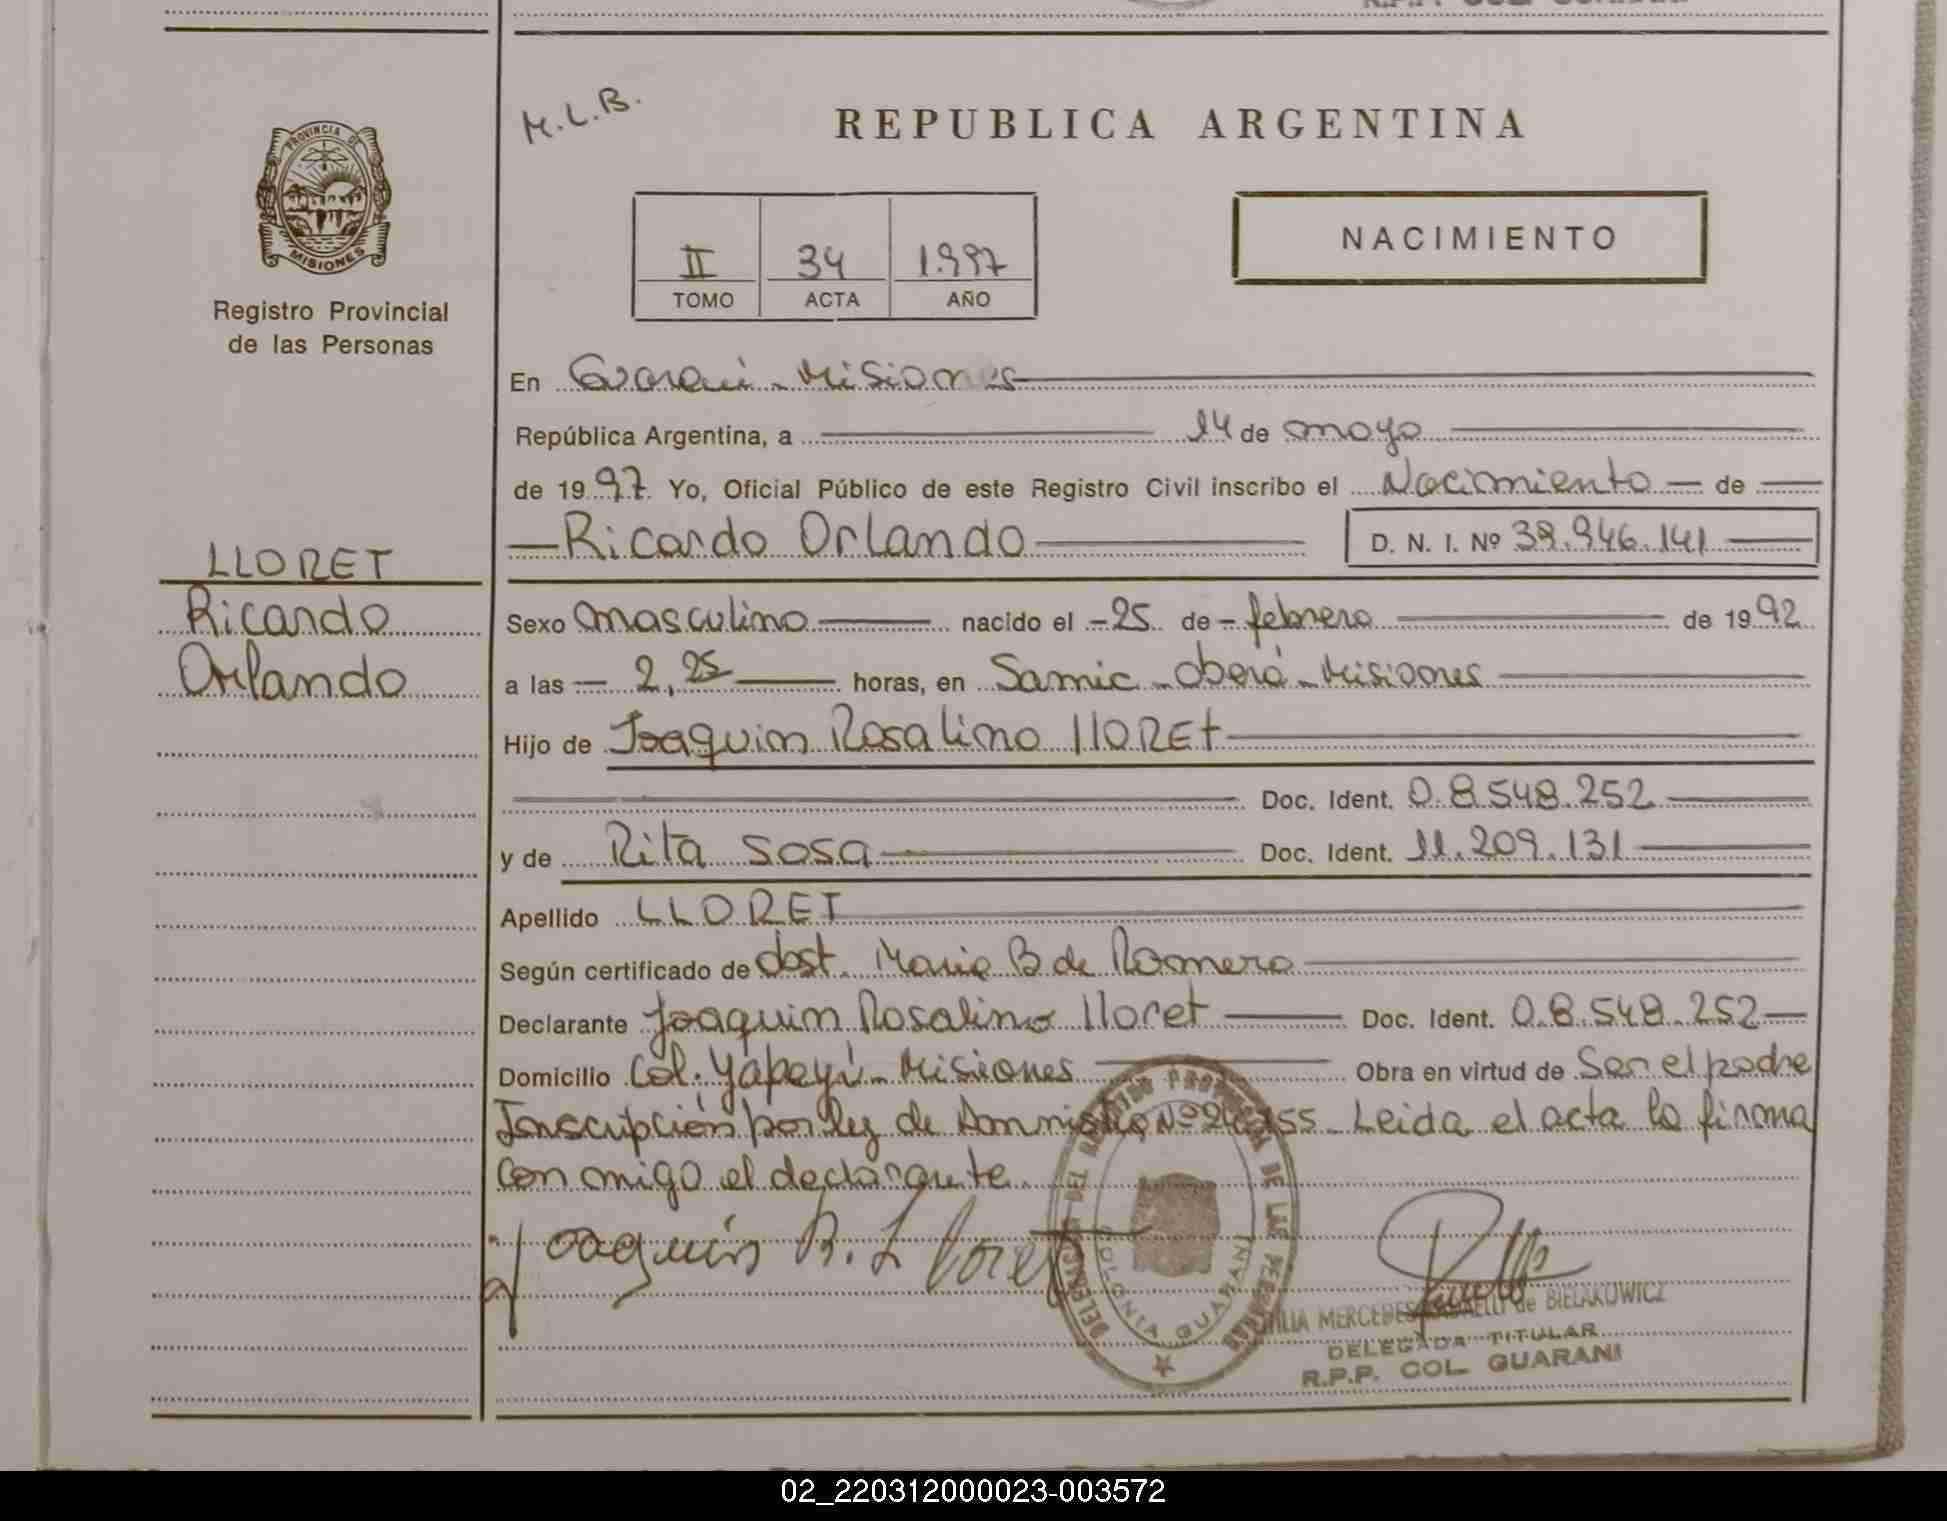 M.L.B.
REPUBLICA ARGENTINA
PROVINCIA DE
MISIONES
Registro Provincial
de las Personas
II 34 1.997
TOMO ACTA AÑO
NACIMIENTO
En Guaraní - Misiones
República Argentina, a 14 de mayo
de 1997 Yo, Oficial Público de este Registro Civil inscribo el Nacimiento de
Ricardo Orlando D. N. I. Nº 39.946.141
LLORET
Ricardo
Orlando
Sexo masculino nacido el 25 de febrero de 1992
a las 2,25 horas, en Samic - Oberá - Misiones
Hijo de Joaquin Rosalino lloREt
Doc. Ident. 0.8.548.252
y de Rita Sosa Doc. Ident. 11.209.131
Apellido LLORET
Según certificado de obst. Maria B de Romero
Declarante Joaquin Rosalino lloret Doc. Ident. 0.8.548.252
Domicilio Col. Yapeyú - Misiones Obra en virtud de Ser el padre
Inscripción por ley de Amnistia Nº Leida el acta la firma
con migo el declarante.
Joaquin R. Lloret
COLONIA GUARANI
MERCEDES de BIELAKOWICZ
DELEGADA TITULAR
R.P.P. COL. GUARANI
02_220312000023-003572